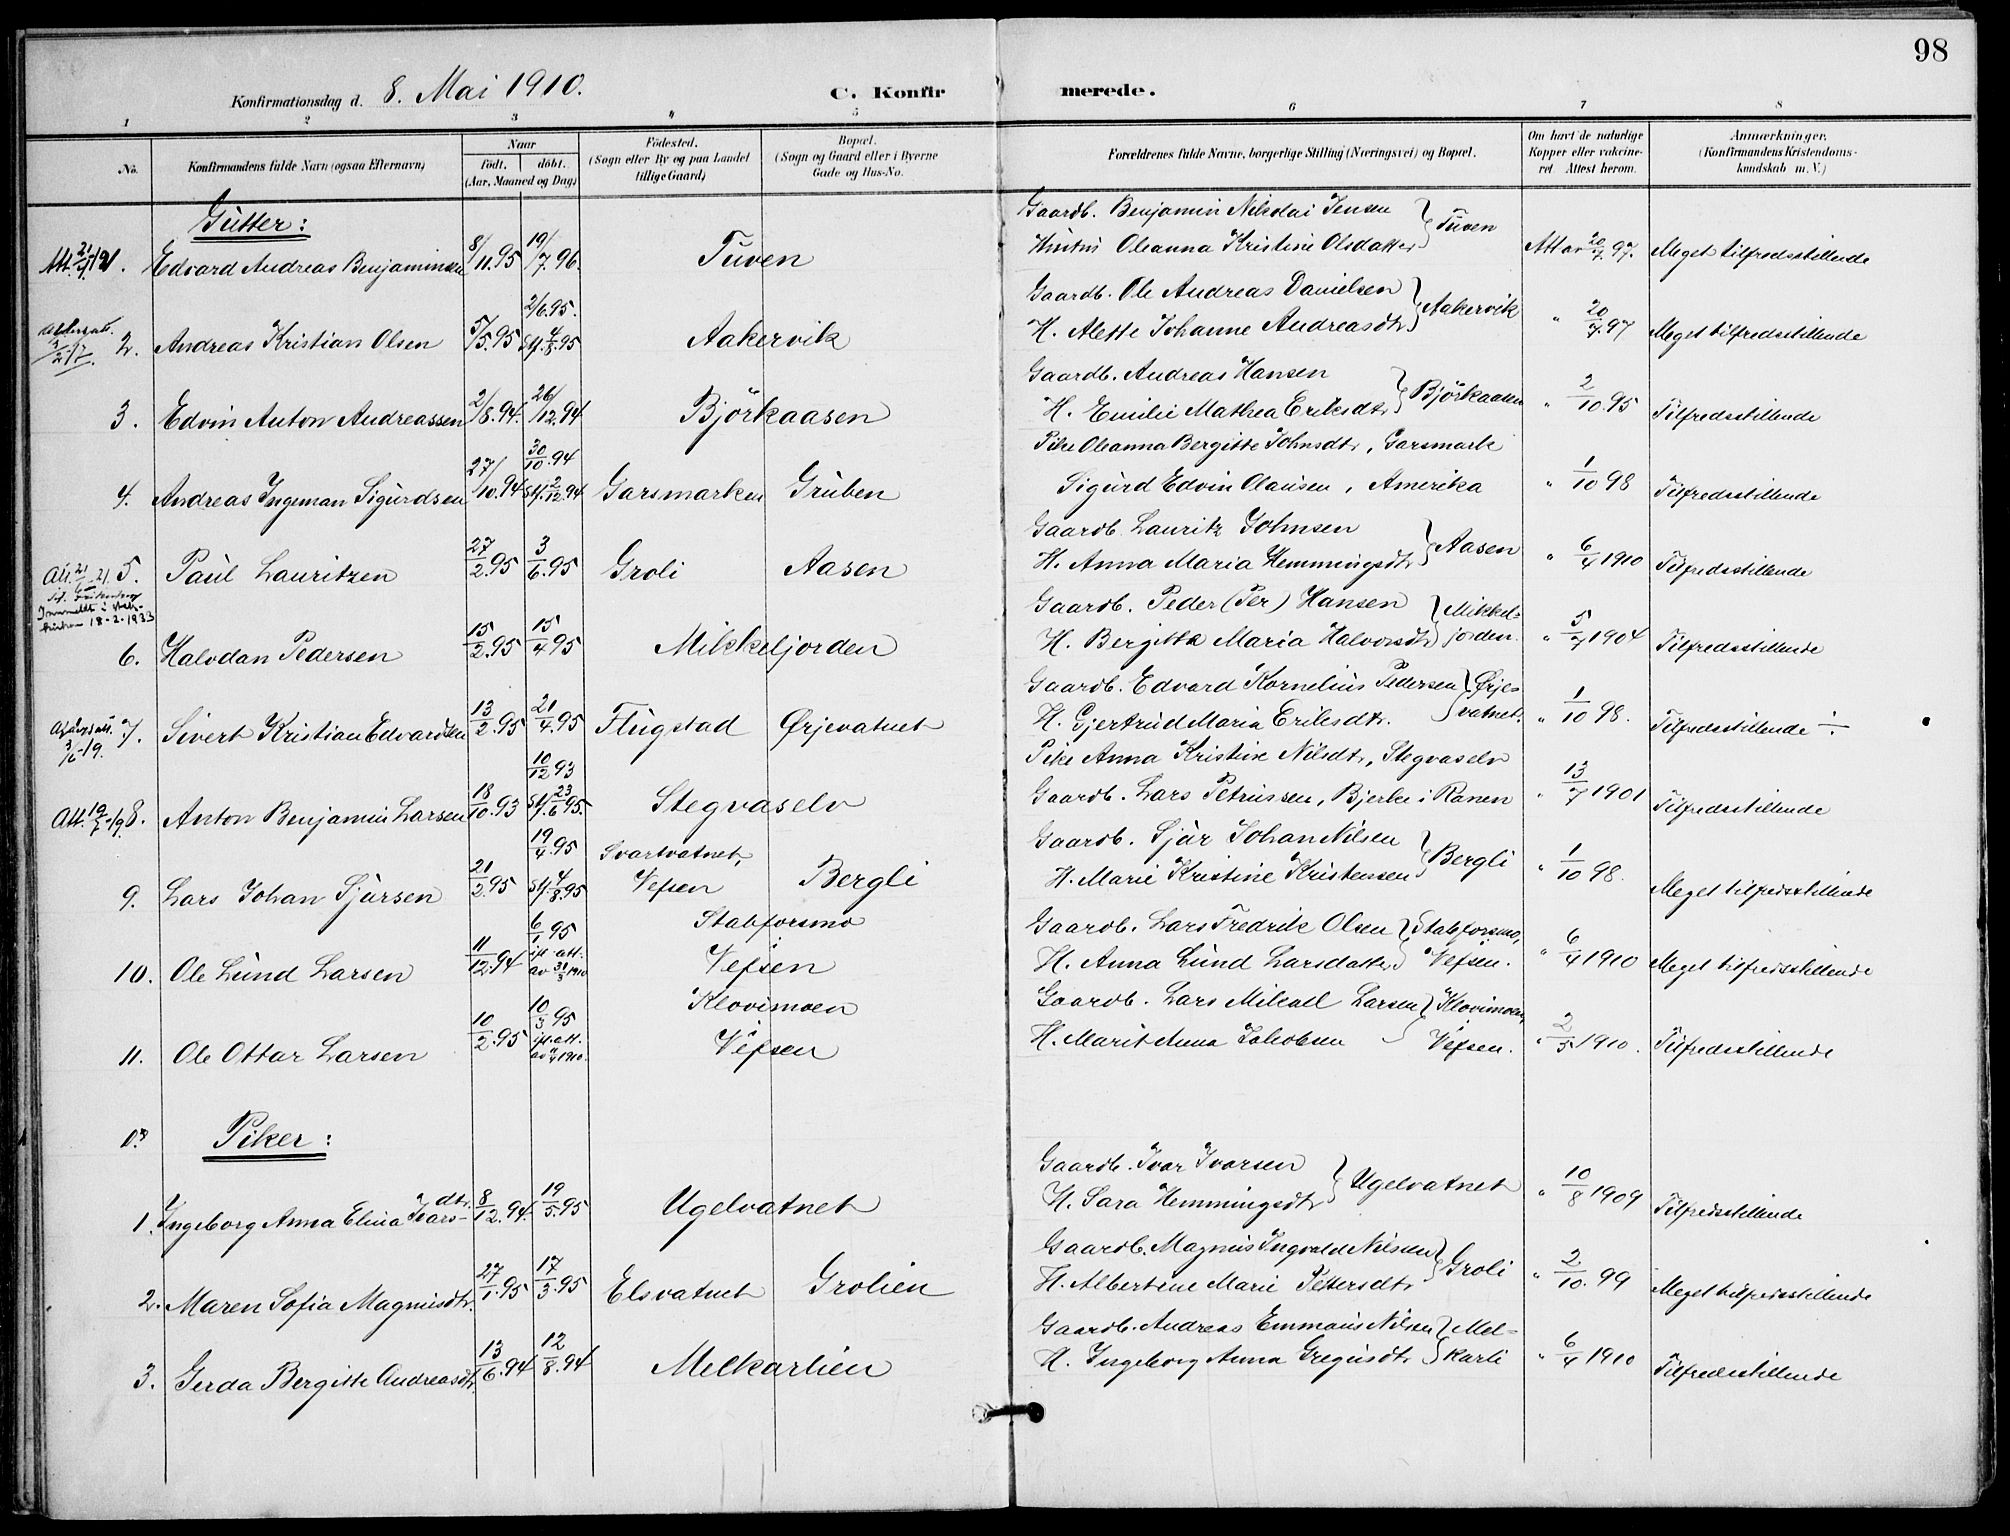 98
Konfirmationsdag d. 8. Mai 1910.
C. Konfirmerede.
1 2 3 4 5 6 7 8
No.
Konfirmandens fulde Navn (ogsaa Efternavn)
Naar
født. døbt.
(Aar, Maaned og Dag)
Fødested.
(Sogn eller By og paa Landet
tillige Gaard)
Bopæl.
(Sogn og Gaard eller i Byerne
Gade og Hus-No.
Forældrenes fulde Navne, borgerlige Stilling (Næringsvei) og Bopæl.
Om havt de naturlige
Kopper eller vakcine-
ret. Attest herom.
Anmærkninger.
(Konfirmandens Kristendoms-
kundskab m. V.)
Gutter:
Gaardb. Benjamin Nikolai Jensen } Tuven
Att. 1. Edvard Andreas Benjaminsen 8/11.95 19/7.96. Tuven Hustru Oleanna Kristine Olsdatter Att av 20/7.97. Meget tilfredsstillende
2/6.95. Gaardb. Ole Andreas Danielsen } Aakervik
2. Andreas Kristian Olsen 5/5.95 St. 4/8.95 Aakervik H. Alette Johanne Andreasdtr " 20/7.97 Meget tilfredsstillende
Gaardb. Andreas Hansen } Björkaasen
3. Edvin Anton Andreassen 2/8.94. 26/12.94 Björkaasen H. Emilie Mathea Eriksdtr " 2/10.95 Tilfredsstillende
30/10.94 Pike Oleanna Bergitte Johnsdtr, Garsmark
4. Andreas Ingeman Sigurdsen 27/10.94 St. 2/12.94 Garsmarken Gruben Sigurd Edvin Olausen, Amerika " 1/10 98 Tilfredsstillende
Gaardb. Lauritz Johnsen } Aasen
Att. 21/6 21. 5. Paul Lauritzen 27/2.95 3/6.95 Groli Aasen H. Anna Maria Hemmingsdtr " 6/4 1910 Tilfredsstillende
18-2-1933
Gaardb. Peder (Per) Hansen } Mikkel-
6. Halvdan Pedersen 15/2.95 15/4 95 Mikkeljorden H. Bergitte Maria Halvorsdtr jorden. " 5/7 1904 Tilfredsstillende
Gaardb. Edvard Kornelius Pedersen } Ørje-
7. Sivert Kristian Edvardsen 13/2.95 21/4.95 Flugstad Ørjevatnet H. Gjertrud Maria Eriksdtr. vatnet. " 1/10 98. Tilfredsstillende ÷
10/12 93 Pike Anna Kristine Nilsdtr, Stegvaselv
Att. 19/7-19 8. Anton Benjamin Larsen 18/10.93 St. 23/6 95. Stegvaselv Gaardb. Lars Petrussen, Bjerke i Ranen " 13/7 1901 Tilfredsstillende
19/4.95 Svartvatnet, Gaardb. Sjur Johan Nilsen } Bergli
9. Lars Johan Sjursen 21/2.95 St. 4/8.95 Vefsen Bergli H. Marie Kristine Kristensen " 1/10 98. Meget tilfredsstillende
6/1 95 Stabforsmo Gaardb. Lars Fredrik Olsen } Stabforsmo,
10. Ole Lund Larsen 11/12.94 ifl. att. av 31/3 1910 Vefsen H. Anna Lund Larsdatter Vefsen. " 6/4 1910 Meget tilfredsstillende
10/3 95 Klovimoen Gaardb. Lars Mikael Larsen } Klovimoen,
11. Ole Ottar Larsen 10/2.95 ifl. att. Vefsen H. Marit Anna Jakobsen Vefsen. " 2/5 1910. Tilfredsstillende
Piker:
Gaardb. Ivar Ivarsen } Ugelvatnet
1. Ingeborg Anna Elina Ivars-dtr. 8/12.94. 19/5.95 Ugelvatnet H. Sara Hemmingsdtr " 10/8 1909 Tilfredsstillende
Gaardb. Magnus Ingvald Nilssen } Groli
2. Maren Sofia Magnusdtr. 27/1.95 17/3.95 Elsvatnet Grolien H. Albertine Marie Pettersdtr " 2/10. 99 Meget tilfredsstillende
Gaardb. Andreas Emmaus Nilsen } Mel-
3. Gerda Bergitte Andreasdtr. 13/6.94 12/8.94 Melkarlien H. Ingeborg Anna Gregusdtr karli " 6/4 1910 Tilfredsstillende